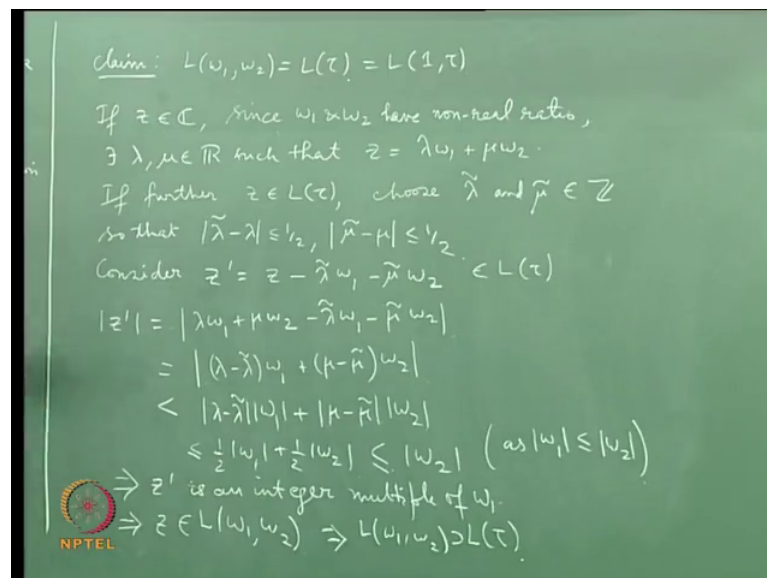 claim: L(ω₁,ω₂) = L(τ) = L(1,τ)
If z ∈ ℂ, since ω₁ & ω₂ have non-real ratio,
∃ λ, μ ∈ ℝ such that z = λω₁ + μω₂.
If further z ∈ L(τ), choose λ̃ and μ̃ ∈ ℤ
so that |λ̃-λ| ≤ 1/2, |μ̃-μ| ≤ 1/2.
Consider z' = z - λ̃ω₁ - μ̃ω₂ ∈ L(τ)
|z'| = |λω₁ + μω₂ - λ̃ω₁ - μ̃ω₂|
= |(λ-λ̃)ω₁ + (μ-μ̃)ω₂|
< |λ-λ̃||ω₁| + |μ-μ̃||ω₂|
≤ 1/2|ω₁| + 1/2|ω₂| ≤ |ω₂| (as |ω₁| ≤ |ω₂|)
⇒ z' is an integer multiple of ω₁.
⇒ z ∈ L(ω₁,ω₂) ⇒ L(ω₁,ω₂) ⊃ L(τ)
NPTEL